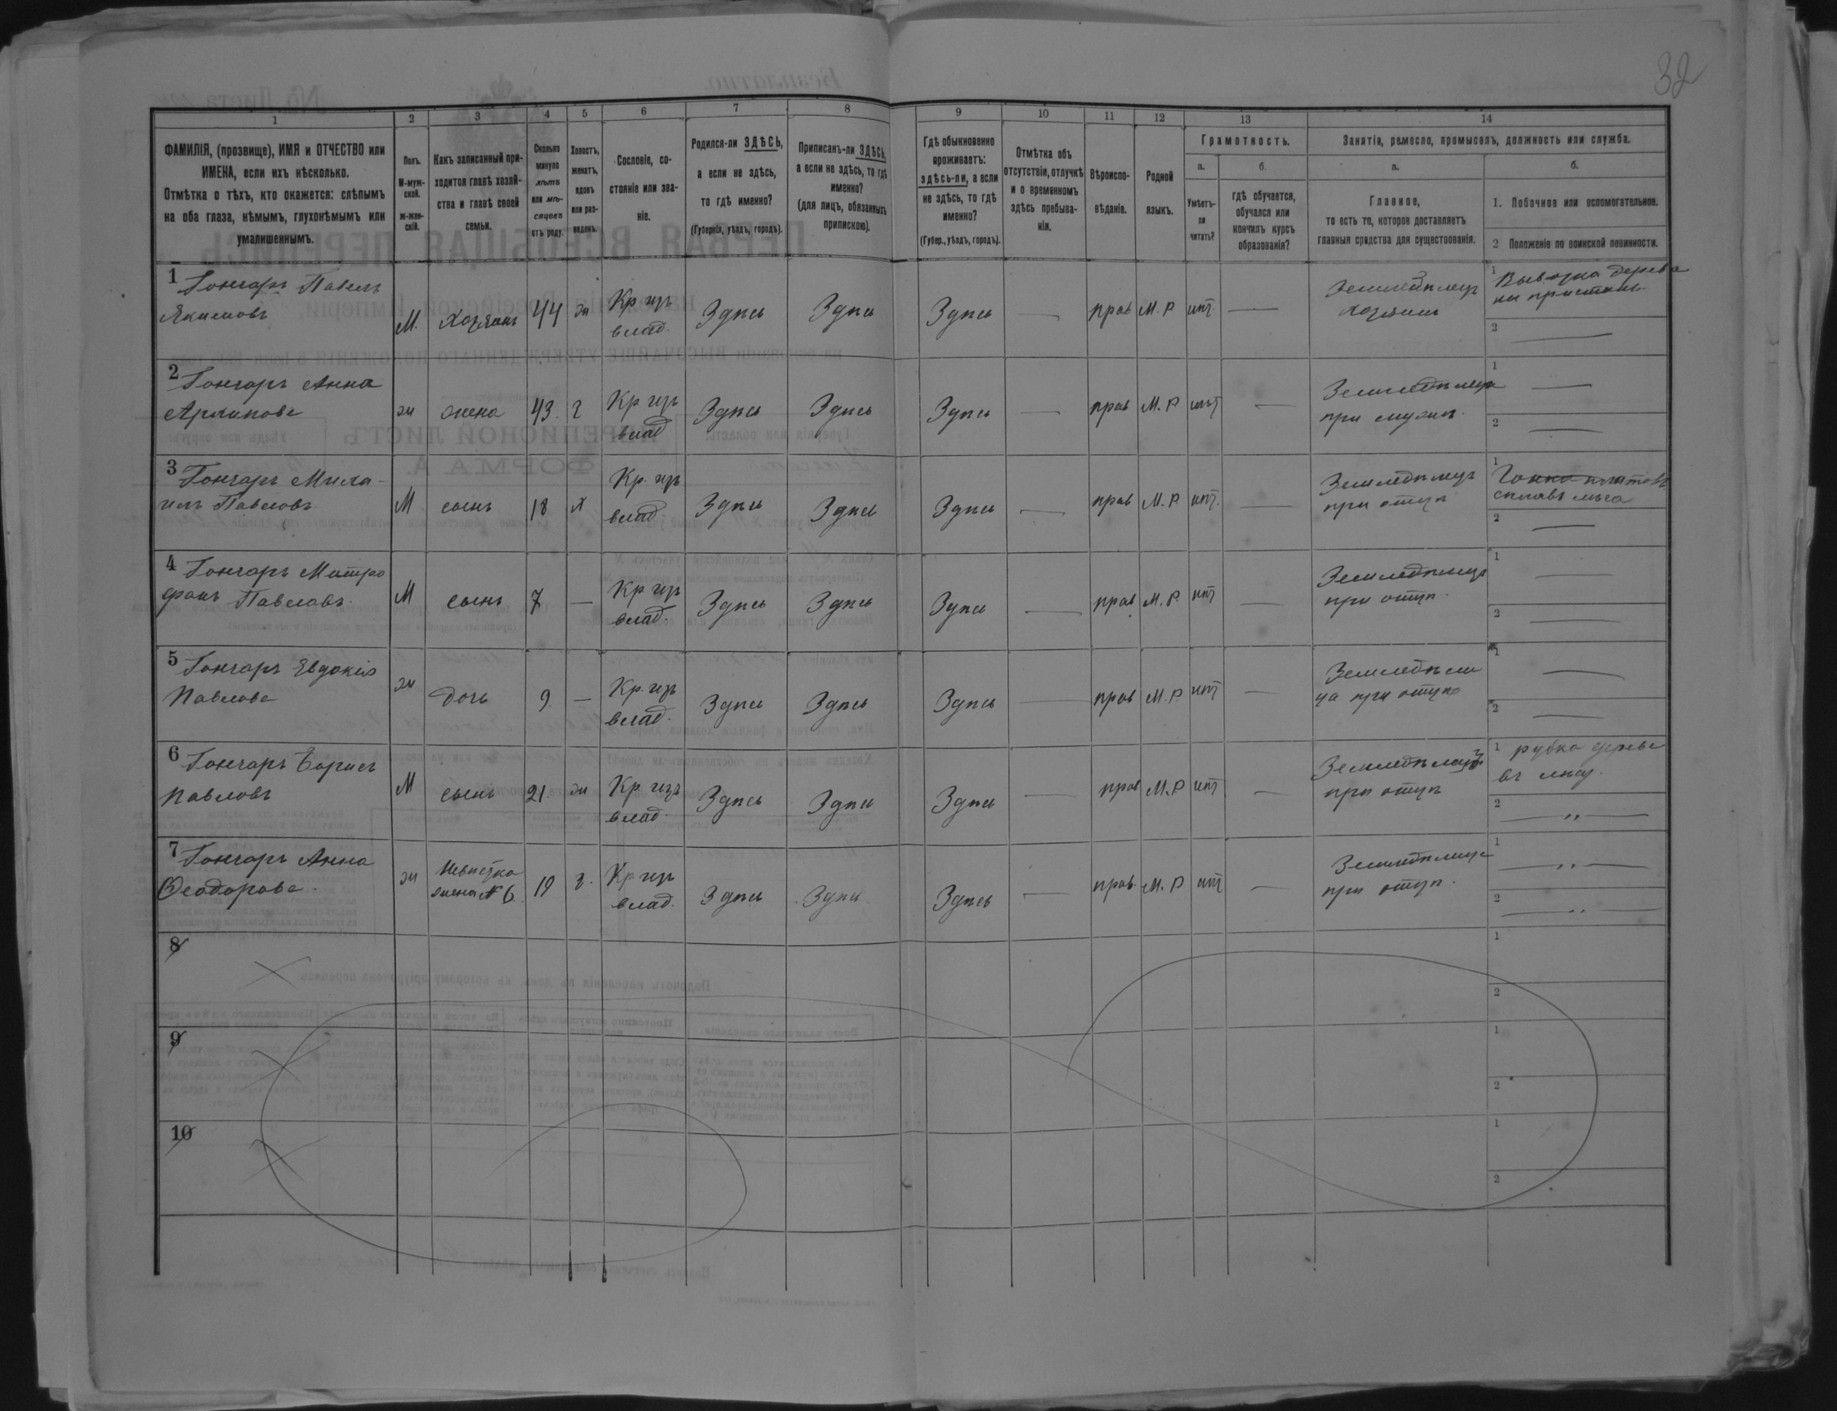 32
1 2 3 4 5 6 7 8 9 10 11 12 13 14
ФАМИЛІЯ, (прозвище), ИМЯ и ОТЧЕСТВО или
ИМЕНА, если ихъ нѣсколько.
Отмѣтка о тѣхъ, кто окажется: слѣпымъ
на оба глаза, нѣмымъ, глухонѣмымъ или
умалишеннымъ.
Полъ.
М-муж-
ской.
ж-жен-
скій.
Какъ записанный при-
ходится главѣ хозяй-
ства и главѣ своей
семьи.
Сколько
минуло
лѣтъ
или мѣ-
сяцевъ
отъ роду.
Холостъ,
женатъ,
вдовъ
или раз-
веденъ.
Сословіе, со-
стояніе или зва-
ніе.
Родился-ли ЗДѢСЬ,
а если не здѣсь,
то гдѣ именно?
(Губернія, уѣздъ, городъ).
Приписанъ-ли ЗДѢСЬ,
а если не здѣсь, то гдѣ
именно?
(для лицъ, обязанныхъ
припискою).
Гдѣ обыкновенно
проживаетъ:
здѣсь-ли, а если
не здѣсь, то гдѣ
именно?
(Губер., уѣздъ, городъ).
Отмѣтка объ
отсутствіи, отлучкѣ
и о временномъ
здѣсь пребыва-
ніи.
Вѣроиспо-
вѣданіе.
Родной
языкъ.
Грамотность.
а.
Умѣетъ-
ли
читать?
б.
гдѣ обучается,
обучался или
кончилъ курсъ
образованія?
Занятія, ремесло, промыселъ, должность или служба.
а.
Главное,
то есть то, которое доставляетъ
главныя средства для существованія.
б.
1. Побочное или вспомогательное.
2 Положеніе по воинской повинности.
1 Гончаръ Павелъ
Якимовъ
М. Хозяинъ 44 ж Кр. изъ
влад. Здѣсь Здѣсь Здѣсь — прав М. Р нѣт —
Земледѣлецъ
хозяинъ
1 Вывозка дерева
на пристань.
2 —
2 Гончаръ Анна
Архипова
ж жена 43. з Кр изъ
влад Здѣсь Здѣсь Здѣсь — прав М. Р нѣт —
Земледѣлица
при мужѣ.
1 —
2 —
3 Гончаръ Миха-
илъ Павловъ
М сынъ 18 х Кр. изъ
влад Здѣсь Здѣсь Здѣсь — прав М. Р. нѣт. —
Земледѣлецъ
при отцѣ
1 Гонка плотовъ
сплавъ лѣса
2 —
4 Гончаръ Митро
фанъ Павловъ.
М сынъ 7 — Кр изъ
влад. Здѣсь Здѣсь Здѣсь — прав М. Р. нѣт —
Земледѣлецъ
при отцѣ.
1 —
2 —
5 Гончаръ Евдокія
Павлова
ж дочь 9 — Кр. изъ
влад. Здѣсь Здѣсь Здѣсь — прав М. Р. нѣт —
Земледѣли
ца при отцѣ
1 —
2 —
6 Гончаръ Борисъ
Павловъ
М сынъ 21. ж Кр изъ
влад. Здѣсь Здѣсь Здѣсь — прав М. Р нѣт —
Земледѣлецъ
при отцѣ
1 рубка дерева
въ лѣсу.
2 — „ —
7 Гончаръ Анна
Ѳеодорова.
ж Невѣстка
жена № 6. 19 з. Кр изъ
влад. Здѣсь Здѣсь Здѣсь — прав. М. Р нѣт —
Земледѣлица
при отцѣ.
1 — „ —
2 — „ —
8
1
2
9
1
2
10
1
2